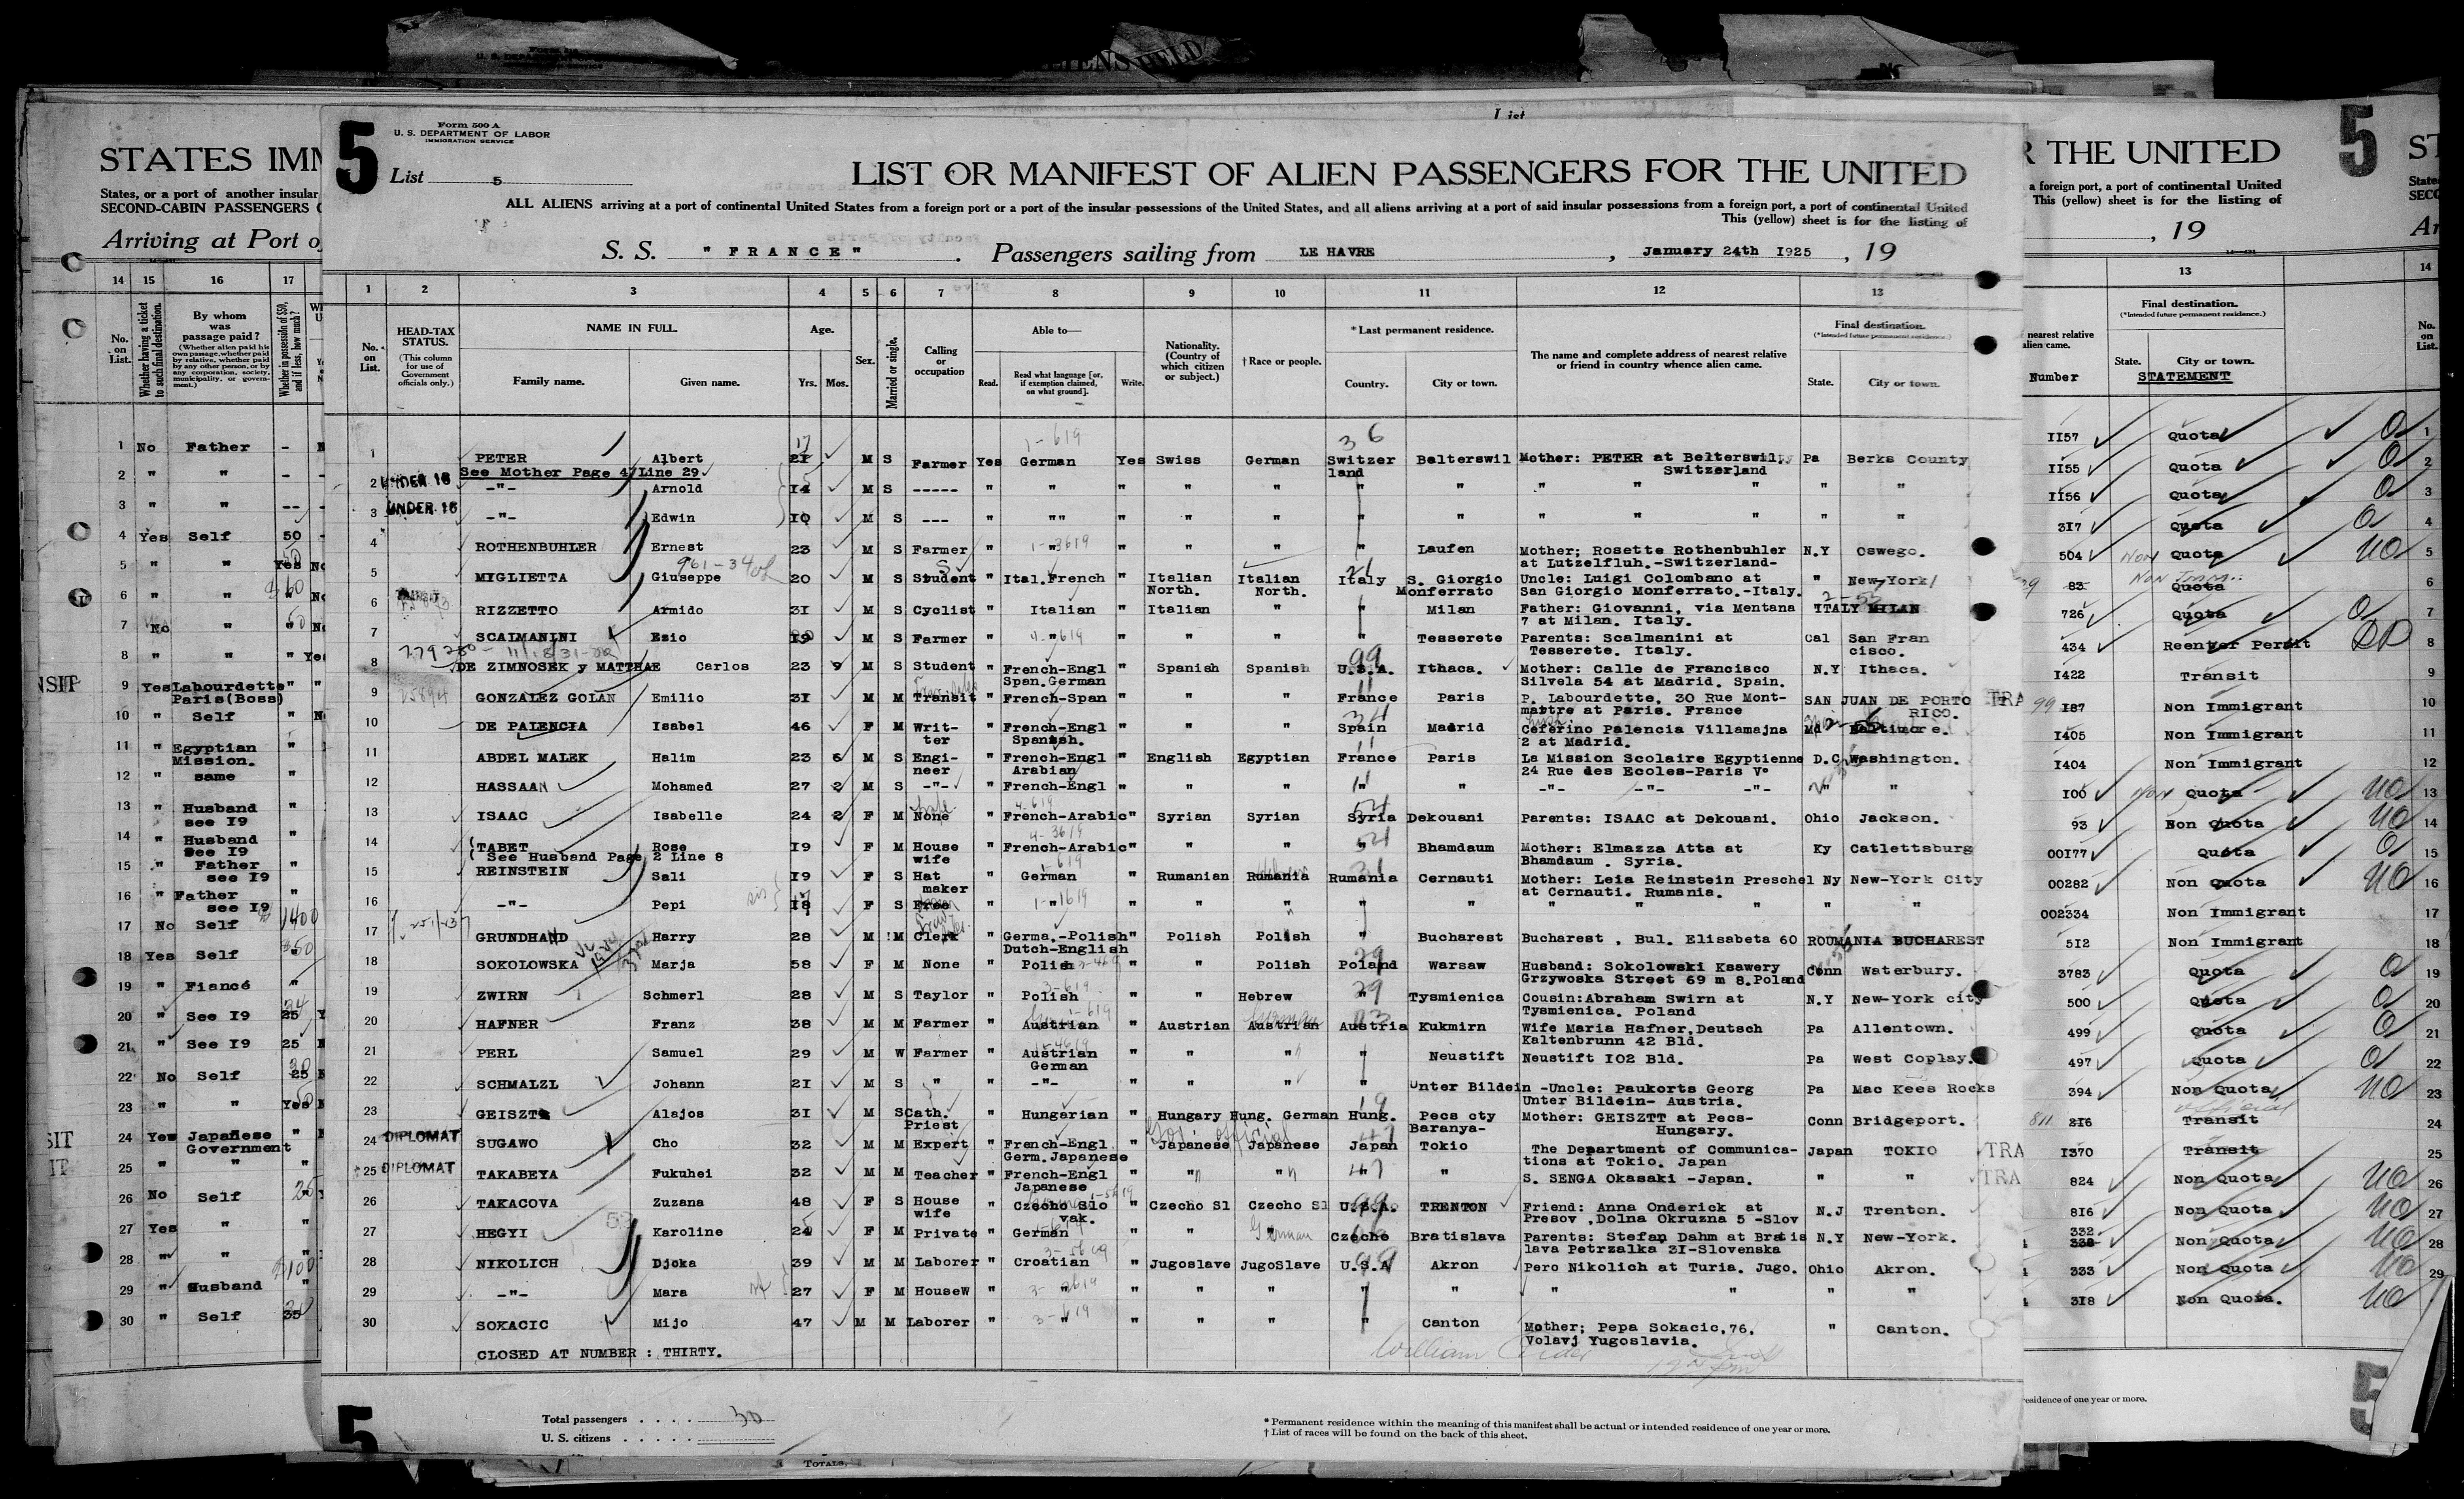 5
Form 500 A
U. S. DEPARTMENT OF LABOR
IMMIGRATION SERVICE
List 5
LIST OR MANIFEST OF ALIEN PASSENGERS FOR THE UNITED
ALL ALIENS arriving at a port of continental United States from a foreign port or a port of the insular possessions of the United States, and all aliens arriving at a port of said insular possessions from a foreign port, a port of continental United
This (yellow) sheet is for the listing of
S. S. "FRANCE". Passengers sailing from LE HAVRE, January 24th 1925, 19
1 2 3 4 5 6 7 8 9 10 11 12 13
No. on List.
HEAD-TAX STATUS.
(This column for use of Government officials only.)
NAME IN FULL.
Family name. Given name.
Age.
Yrs. Mos.
Sex.
Married or single.
Calling or occupation
Able to—
Read. Read what language [or, if exemption claimed, on what ground]. Write.
Nationality. (Country of which citizen or subject.)
† Race or people.
*Last permanent residence.
Country. City or town.
The name and complete address of nearest relative or friend in country whence alien came.
Final destination.
(*Intended future permanent residence.)
State. City or town.
1 PETER Albert 21 M S Farmer Yes German Yes Swiss German Switzer land Balterswil Mother: PETER at Belterswil, Switzerland Pa Berks County
See Mother Page 4/Line 29
2 UNDER 16 -"- Arnold 14 M S ----- " " " " " " " " " " " "
3 UNDER 16 -"- Edwin 10 M S --- " "" " " " " " " " " " "
4 ROTHENBUHLER Ernest 23 M S Farmer " " " " " " Laufen Mother; Rosette Rothenbuhler at Lutzelfluh.-Switzerland- N.Y Oswego.
5 MIGLIETTA Giuseppe 20 M S Student " Ital.French " Italian North. Italian North. Italy S. Giorgio Monferrato Uncle: Luigi Colombano at San Giorgio Monferrato.-Italy. " New-York
6 RIZZETTO Armido 31 M S Cyclist " Italian " Italian " " Milan Father: Giovanni, via Mentana 7 at Milan. Italy. ITALY MILAN
7 SCALMANINI Ezio 19 M S Farmer " " " " " " Tesserete Parents: Scalmanini at Tesserete. Italy. Cal San Fran cisco.
8 DE ZIMNOSEK y MATTHAE Carlos 23 9 M S Student " French-Engl Span.German " Spanish Spanish U.S.A. Ithaca. Mother: Calle de Francisco Silvela 54 at Madrid. Spain. N.Y Ithaca.
9 GONZALEZ GOLAN Emilio 31 M M Transit " French-Span " " " France Paris P. Labourdette, 30 Rue Mont- mattre at Paris. France SAN JUAN DE PORTO RICO.
10 DE PALENCIA Isabel 46 F M Writ- ter " French-Engl Spanish. " " " Spain Madrid Ceferino Palencia Villamajna 2 at Madrid. Md Baltimore.
11 ABDEL MALEK Halim 23 6 M S Engi- neer " French-Engl Arabian " English Egyptian France Paris La Mission Scolaire Egyptienne 24 Rue des Ecoles-Paris V° D.C Washington.
12 HASSAAN Mohamed 27 2 M S -"- " French-Engl " " " " " -"- -"- -"- " "
13 ISAAC Isabelle 24 2 F M None " French-Arabic " Syrian Syrian Syria Dekouani Parents: ISAAC at Dekouani. Ohio Jackson.
14 TABET Rose 19 F M House wife " French-Arabic " " " " Bhamdaum Mother: Elmazza Atta at Bhamdaum . Syria. Ky Catlettsburg
( See Husband Page 2 Line 8
15 REINSTEIN Sali 19 F S Hat maker " German " Rumanian Rumania Rumania Cernauti Mother: Leia Reinstein Preschel at Cernauti. Rumania. Ny New-York City
16 -"- Pepi 18 F S Free " " " " " " " " " " " "
17 GRUNDHAND Harry 28 M M Clerk " Germa.-Polish Dutch-English " Polish Polish " Bucharest Bucharest . Bul. Elisabeta 60 ROUMANIA BUCHAREST
18 SOKOLOWSKA Marja 58 F M None " Polish " " Polish Poland Warsaw Husband: Sokolowski Ksawery Grzywoska Street 69 m 8.Poland Conn Waterbury.
19 ZWIRN Schmerl 28 M S Taylor " Polish " " Hebrew " Tysmienica Cousin:Abraham Swirn at Tysmienica. Poland N.Y New-York city
20 HAFNER Franz 38 M M Farmer " Austrian " Austrian Austrian Austria Kukmirn Wife Maria Hafner,Deutsch Kaltenbrunn 42 Bld. Pa Allentown.
21 PERL Samuel 29 M W Farmer " Austrian German " " " " Neustift Neustift 102 Bld. Pa West Coplay.
22 SCHMALZL Johann 21 M S " " -"- " " " " Unter Bildein -Uncle: Paukorts Georg Unter Bildein- Austria. Pa Mac Kees Rocks
23 GEISZTT Alajos 31 M S Cath. Priest " Hungarian " Hungary Hung. German Hung. Pecs cty Baranya- Mother: GEISZTT at Pecs- Hungary. Conn Bridgeport.
24 DIPLOMAT SUGAWO Cho 32 M M Expert " French-Engl Germ.Japanese " Japanese Japanese Japan Tokio The Department of Communica- tions at Tokio. Japan Japan TOKIO TRA
25 DIPLOMAT TAKABEYA Fukuhei 32 M M Teacher " French-Engl Japanese " " " " " S. SENGA Okasaki -Japan. " " TRA
26 TAKACOVA Zuzana 48 F S House wife " Czecho Slo vak. " Czecho Sl Czecho Sl U.S.A. TRENTON Friend: Anna Onderick at Presov ,Dolna Okruzna 5 -Slov N.J Trenton.
27 HEGYI Karoline 24 F M Private " German " " " Czecho Bratislava Parents: Stefan Dahm at Bratis lava Petrzalka 31-Slovenska N.Y New-York.
28 NIKOLICH Djoka 39 M M Laborer " Croatian " Jugoslave JugoSlave U.S.A Akron Pero Nikolich at Turia. Jugo. Ohio Akron.
29 -"- Mara 27 F M HouseW " " " " " " " " " " "
30 SOKACIC Mijo 47 M M Laborer " " " " " " Canton Mother; Pepa Sokacic,76, Volavj Yugoslavia. " Canton.
CLOSED AT NUMBER : THIRTY.
Total passengers . . . . 30
U. S. citizens . . . . .
* Permanent residence within the meaning of this manifest shall be actual or intended residence of one year or more.
† List of races will be found on the back of this sheet.
5
TOTALS,
STATES IMM
States, or a port of another insular
SECOND-CABIN PASSENGERS
Arriving at Port o
14 15 16 17
No. on List.
Whether having a ticket to such final destination.
By whom was passage paid?
(Whether alien paid his own passage, whether paid by relative, whether paid by any other person, or by any corporation, society, municipality, or government.)
Whether in possession of $50, and if less, how much?
1 No Father -
2 " " -
3 " " --
4 Yes Self 50
5 " " Yes
6 " " $60
7 No " "
8 " " " Yes
9 Yes Labourdette Paris(Boss) " "
10 " Self "
11 " Egyptian Mission. "
12 " same "
13 " Husband see 19 "
14 " Husband See 19 "
15 " Father see 19 "
16 " Father see 19 "
17 No Self 1400
18 Yes Self 350
19 " Fiancé "
20 " See 19 25
21 " See 19 25
22 No Self 25
23 " " Yes
24 Yes Japanese Government "
25 " " "
26 No Self 25
27 Yes " "
28 " " $100
29 " Husband "
30 " Self 35
R THE UNITED
5
a foreign port, a port of continental United
This (yellow) sheet is for the listing of
, 19
13
Final destination.
(*Intended future permanent residence.)
nearest relative
alien came.
State. City or town.
Number STATEMENT
1157 Quota
1155 Quota
1156 Quota
317 Quota
504 Non Quota
83 Non Imm. Quota
726 Quota
434 Reenter Permit
1422 Transit
187 Non Immigrant
1405 Non Immigrant
1404 Non Immigrant
100 Non Quota
93 Non Quota
00177 Quota
00282 Non Quota
002334 Non Immigrant
512 Non Immigrant
3783 Quota
500 Quota
499 Quota
497 Quota
394 Non Quota
216 Transit
1370 Transit
824 Non Quota
816 Non Quota
332 Non Quota
333 Non Quota
318 Non Quota.
residence of one year or more.
5
ST
14
No. on List.